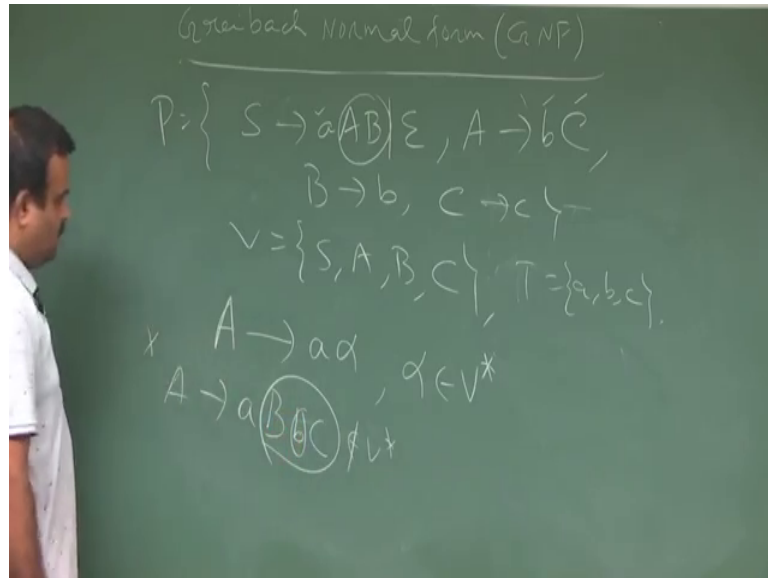 Greibach Normal form (GNF)
P = { S → aAB | ε, A → bC,
B → b, C → c }
V = {S, A, B, C}, T = {a, b, c}.
A → aα, α ∈ V*
x A → aBbC ∉ V*